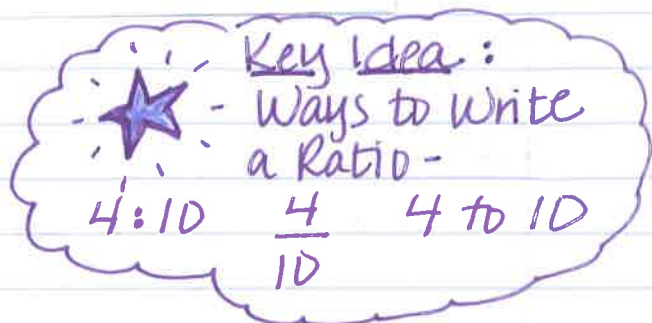 Key Idea:
- Ways to Write
a Ratio -
4:10 4/10 4 to 10